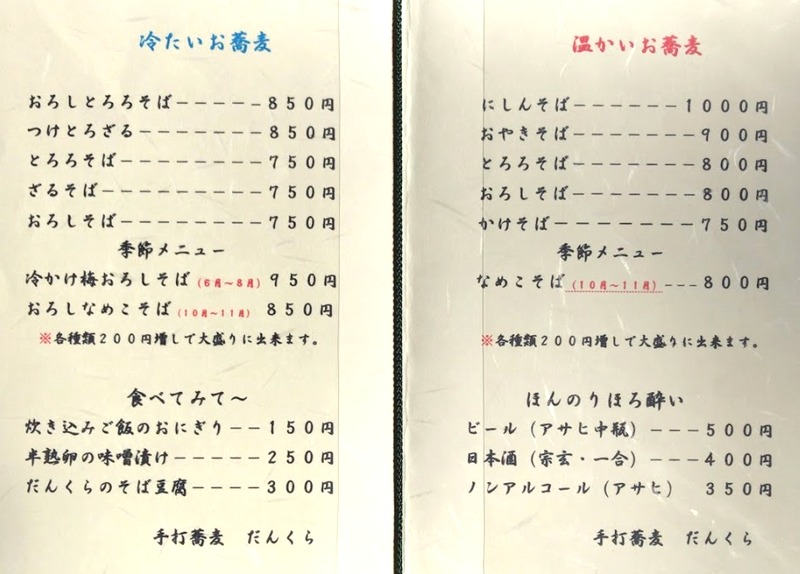 冷たいお蕎麦
おろしとろろそば－－－－－－８５０円
つけとろざる－－－－－－－－８５０円
とろろそば－－－－－－－－－７５０円
ざるそば－－－－－－－－－－７５０円
おろしそば－－－－－－－－－７５０円
季節メニュー
冷かけ梅おろしそば（6月～8月）９５０円
おろしなめこそば（10月～11月）８５０円
※各種類２００円増しで大盛りに出来ます。
食べてみて～
炊き込みご飯のおにぎり－－１５０円
半熟卵の味噌漬け－－－－－２５０円
だんくらのそば豆腐－－－－３００円
手打蕎麦　だんくら
温かいお蕎麦
にしんそば－－－－－－１０００円
おやきそば－－－－－－－９００円
とろろそば－－－－－－－８００円
おろしそば－－－－－－－８００円
かけそば－－－－－－－－７５０円
季節メニュー
なめこそば（10月～11月）---８００円
※各種類２００円増しで大盛りに出来ます。
ほんのりほろ酔い
ビール（アサヒ中瓶）－－－５００円
日本酒（宗玄・一合）－－－４００円
ノンアルコール（アサヒ）　３５０円
手打蕎麦　だんくら